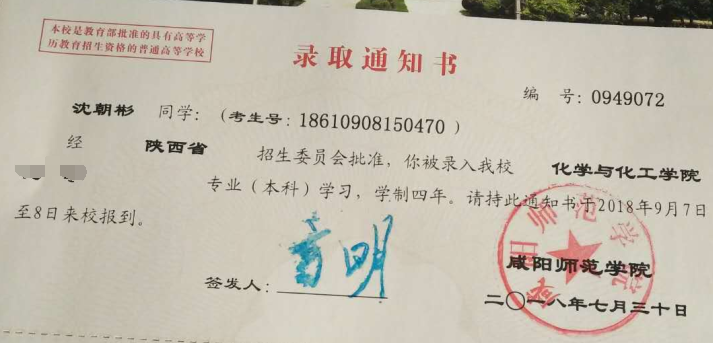 本校是教育部批准的具有高等学
历教育招生资格的普通高等学校
录取通知书
编 号:0949072
沈朝彬 同学:(考生号:18610908150470)
经 陕西省 招生委员会批准,你被录入我校 化学与化工学院
专业(本科)学习,学制四年。请持此通知书于2018年9月7日
至8日来校报到。
签发人:
咸阳师范学院
咸阳师范学院
二〇一八年七月三十日